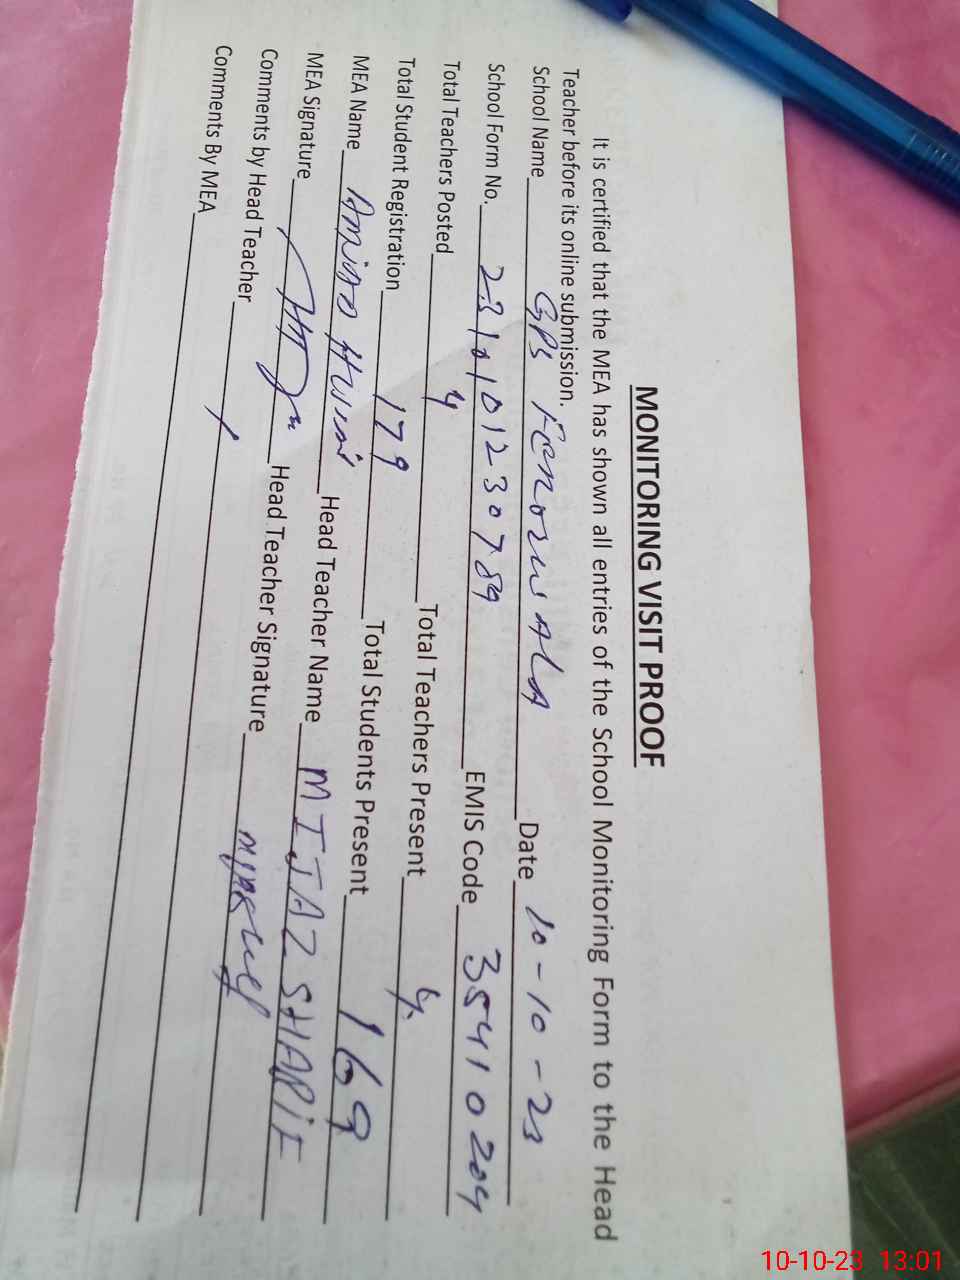 MONITORING VISIT PROOF
It is certified that the MEA has shown all entries of the School Monitoring Form to the Head
Teacher before its online submission.
School Name GPS Date 10-10-23
School Form No. EMIS Code 35410204
Total Teachers Posted 4 Total Teachers Present 4
Total Student Registration 179 Total Students Present 169
MEA Name Head Teacher Name MIJAZ SHARIF
MEA Signature Head Teacher Signature
Comments by Head Teacher /
Comments By MEA
10-10-23 13:01